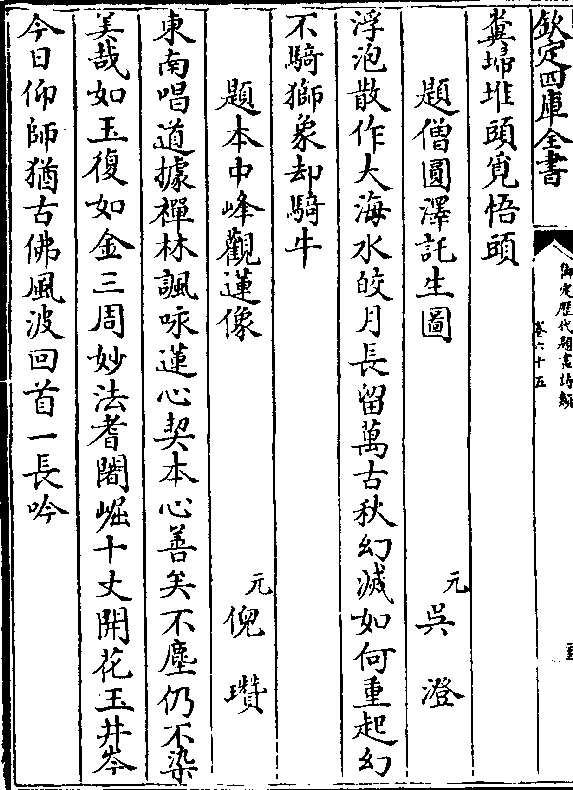 欽定四庫全書
御定歷代題畫詩類
卷六十五
糞埽堆頭覓悟頭
題僧圓澤託生圖
元
吳澄
浮泡散作大海水皎月長留萬古秋幻滅如何重起幻
不騎獅象却騎牛
題本中峰觀蓮像
元
倪瓚
東南唱道據禪林諷咏蓮心契本心善矣不塵仍不染
美哉如玉復如金三周妙法耆闍崛十丈開花玉井岑
今日仰師猶古佛風波回首一長吟